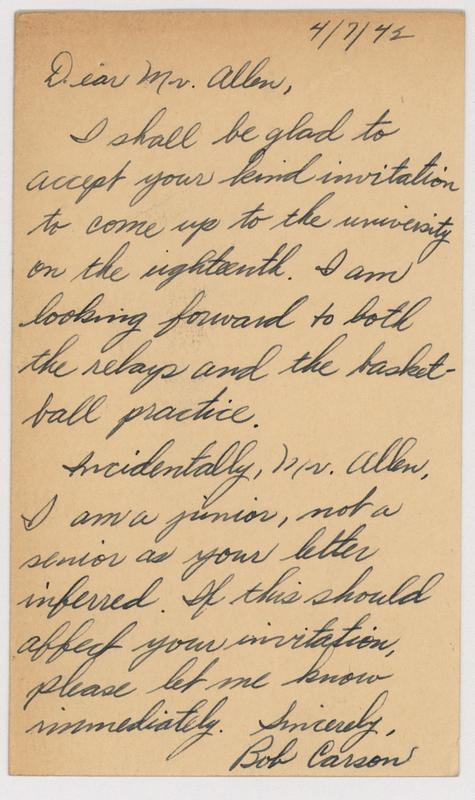 4/7/42
Dear Mr. Allen,
I shall be glad to
accept your kind invitation
to come up to the university
on the eighteenth. I am
looking forward to both
the relays and the basket-
ball practice.
Incidentally, Mr. Allen,
I am a junior, not a
senior as your letter
inferred. If this should
affect your invitation,
please let me know
immediately. Sincerely,
Bob Carson